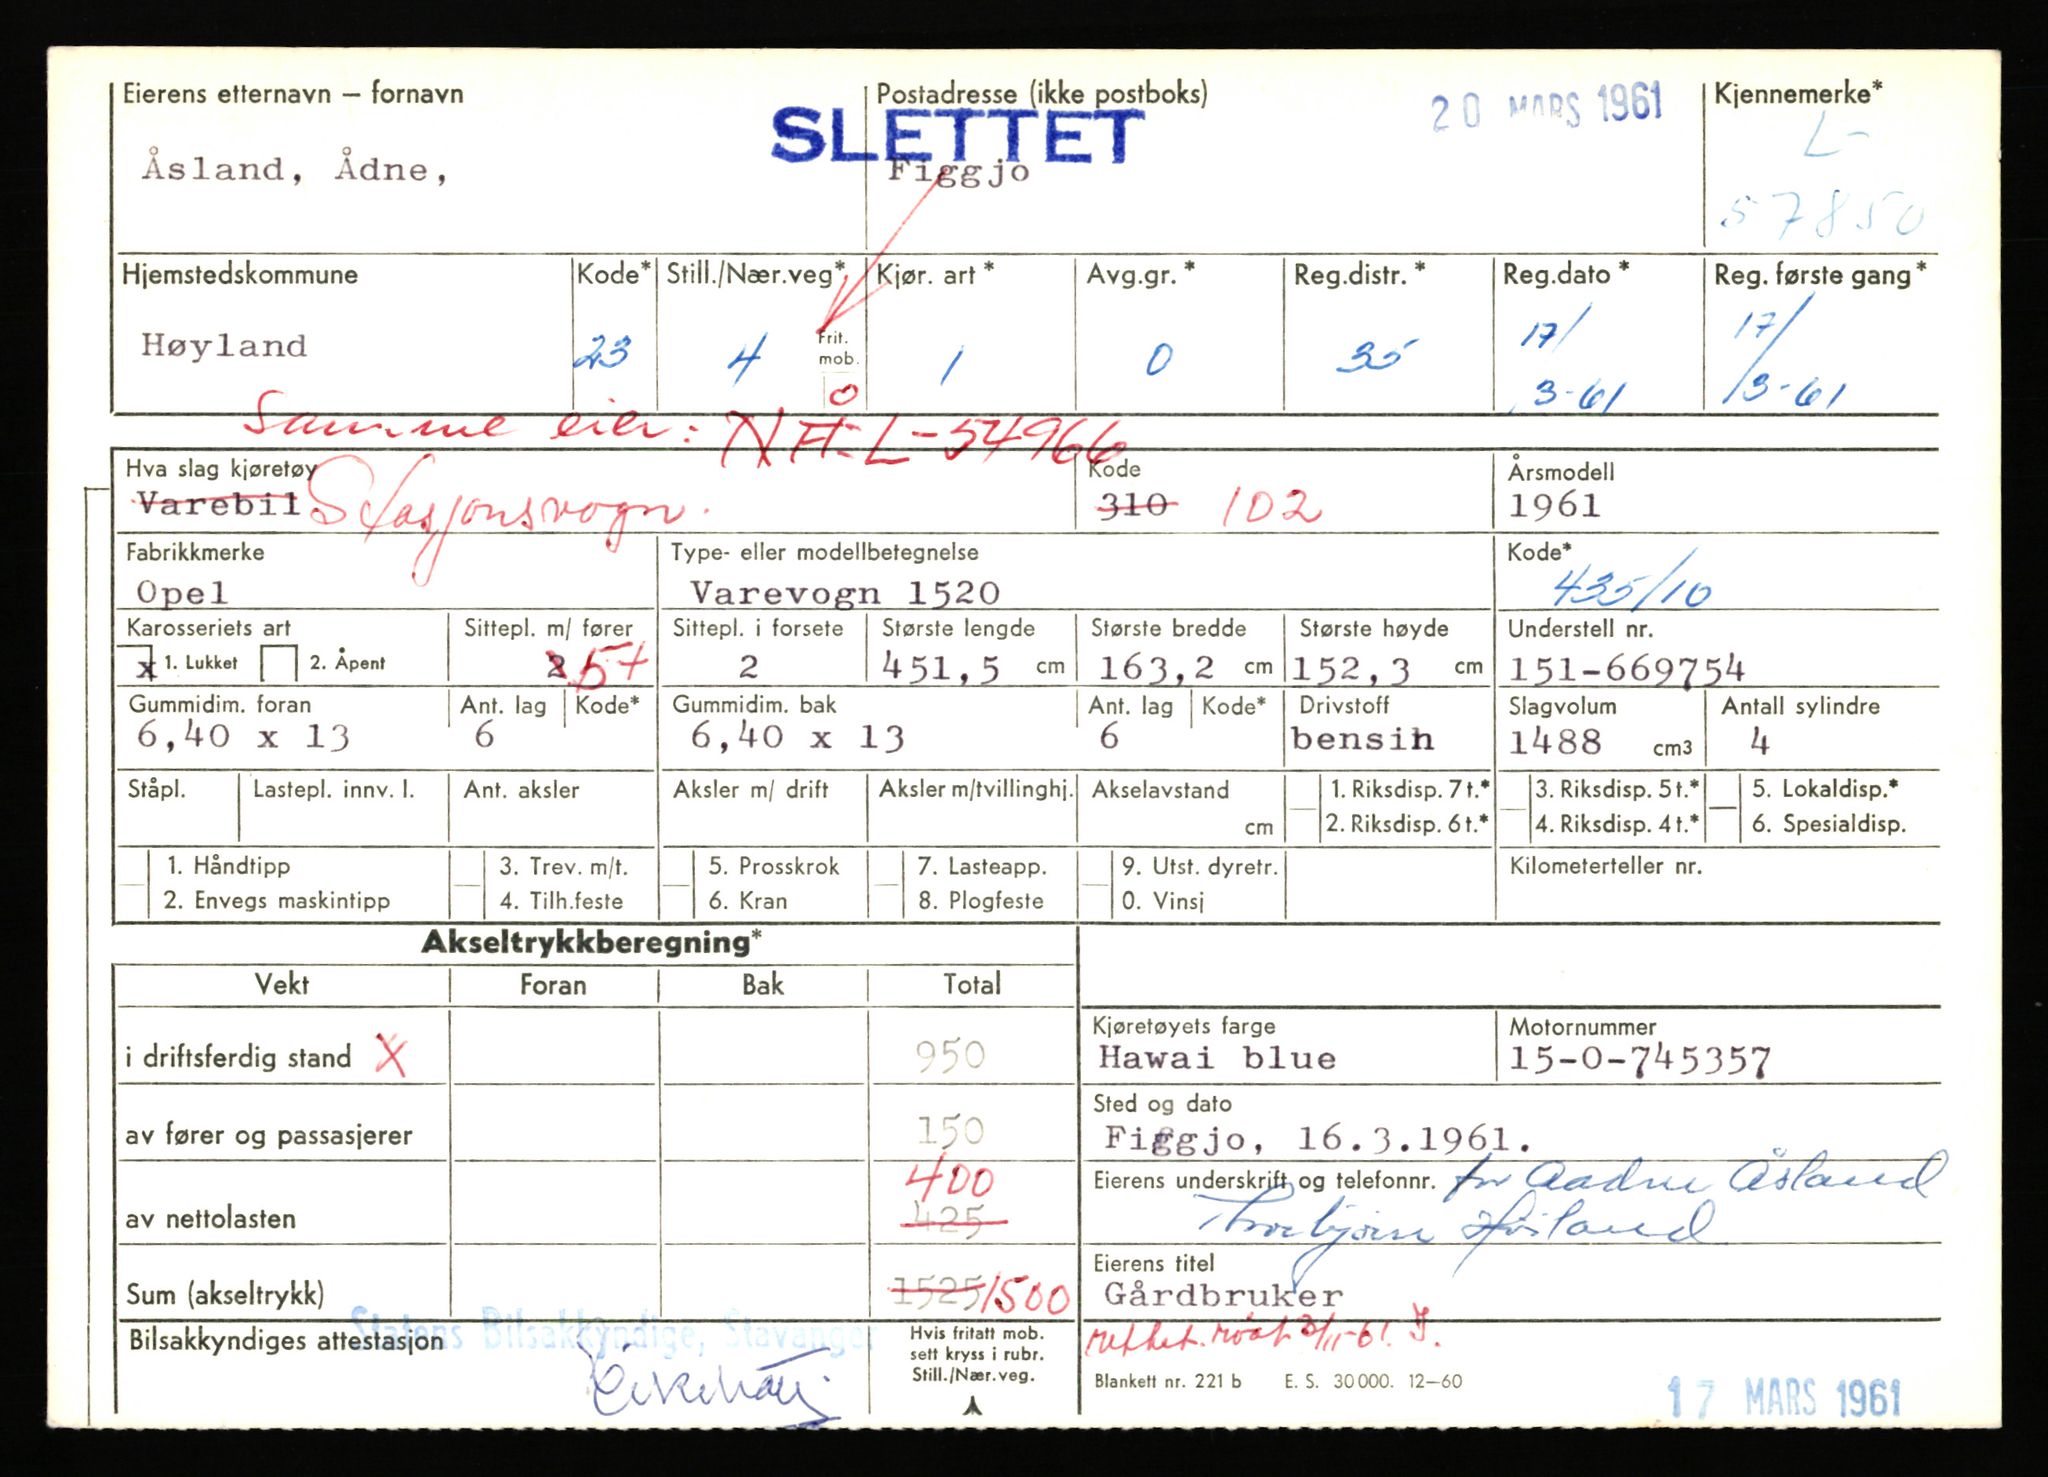 Eierens etternavn – fornavn
Postadresse (ikke postboks)
20 MARS 1961
Kjennemerke*
SLETTET
L-
57850
Åsland, Ådne,
Figgjo
Hjemstedskommune
Kode*
Still./Nær.veg*
Kjør. art *
Avg.gr. *
Reg.distr. *
Reg.dato *
Reg. første gang*
Høyland
23
4
Frit. mob.
0
1
0
35
17/3-61
17/3-61
Samme eier: NÅ: L-54966
Hva slag kjøretøy
Kode
Årsmodell
Varebil. Stasjonsvogn.
310 102
1961
Fabrikkmerke
Type- eller modellbetegnelse
Kode*
Opel
Varevogn 1520
435/10
Karosseriets art
Sittepl. m/ fører
Sittepl. i forsete
Største lengde
Største bredde
Største høyde
Understell nr.
x 1. Lukket
2. Åpent
2 5+
2
451,5 cm
163,2 cm
152,3 cm
151-669754
Gummidim. foran
Ant. lag
Kode*
Gummidim. bak
Ant. lag
Kode*
Drivstoff
Slagvolum
Antall sylindre
6,40 x 13
6
6,40 x 13
6
bensin
1488 cm3
4
Ståpl.
Lastepl. innv. l.
Ant. aksler
Aksler m/ drift
Aksler m/tvillinghj.
Akselavstand
cm
1. Riksdisp. 7 t.*
2. Riksdisp. 6 t.*
3. Riksdisp. 5 t.*
4. Riksdisp. 4 t.*
5. Lokaldisp.*
6. Spesialdisp.
1. Håndtipp
2. Envegs maskintipp
3. Trev. m/t.
4. Tilh.feste
5. Prosskrok
6. Kran
7. Lasteapp.
8. Plogfeste
9. Utst. dyretr.
0. Vinsj
Kilometerteller nr.
Akseltrykkberegning*
Vekt
Foran
Bak
Total
i driftsferdig stand X
950
Kjøretøyets farge
Hawai blue
Motornummer
15-0-745357
av fører og passasjerer
150
Sted og dato
Figgjo, 16.3.1961.
av nettolasten
400
425
Eierens underskrift og telefonnr. for Aadne Åsland
Torbjørn Høiland
Sum (akseltrykk)
1525 1500
Eierens titel
Gårdbruker
Statens Bilsakkyndige, Stavanger
Bilsakkyndiges attestasjon
Hvis fritatt mob.
sett kryss i rubr.
Still./Nær.veg.
Blankett nr. 221 b E. S. 30000. 12–60
17 MARS 1961